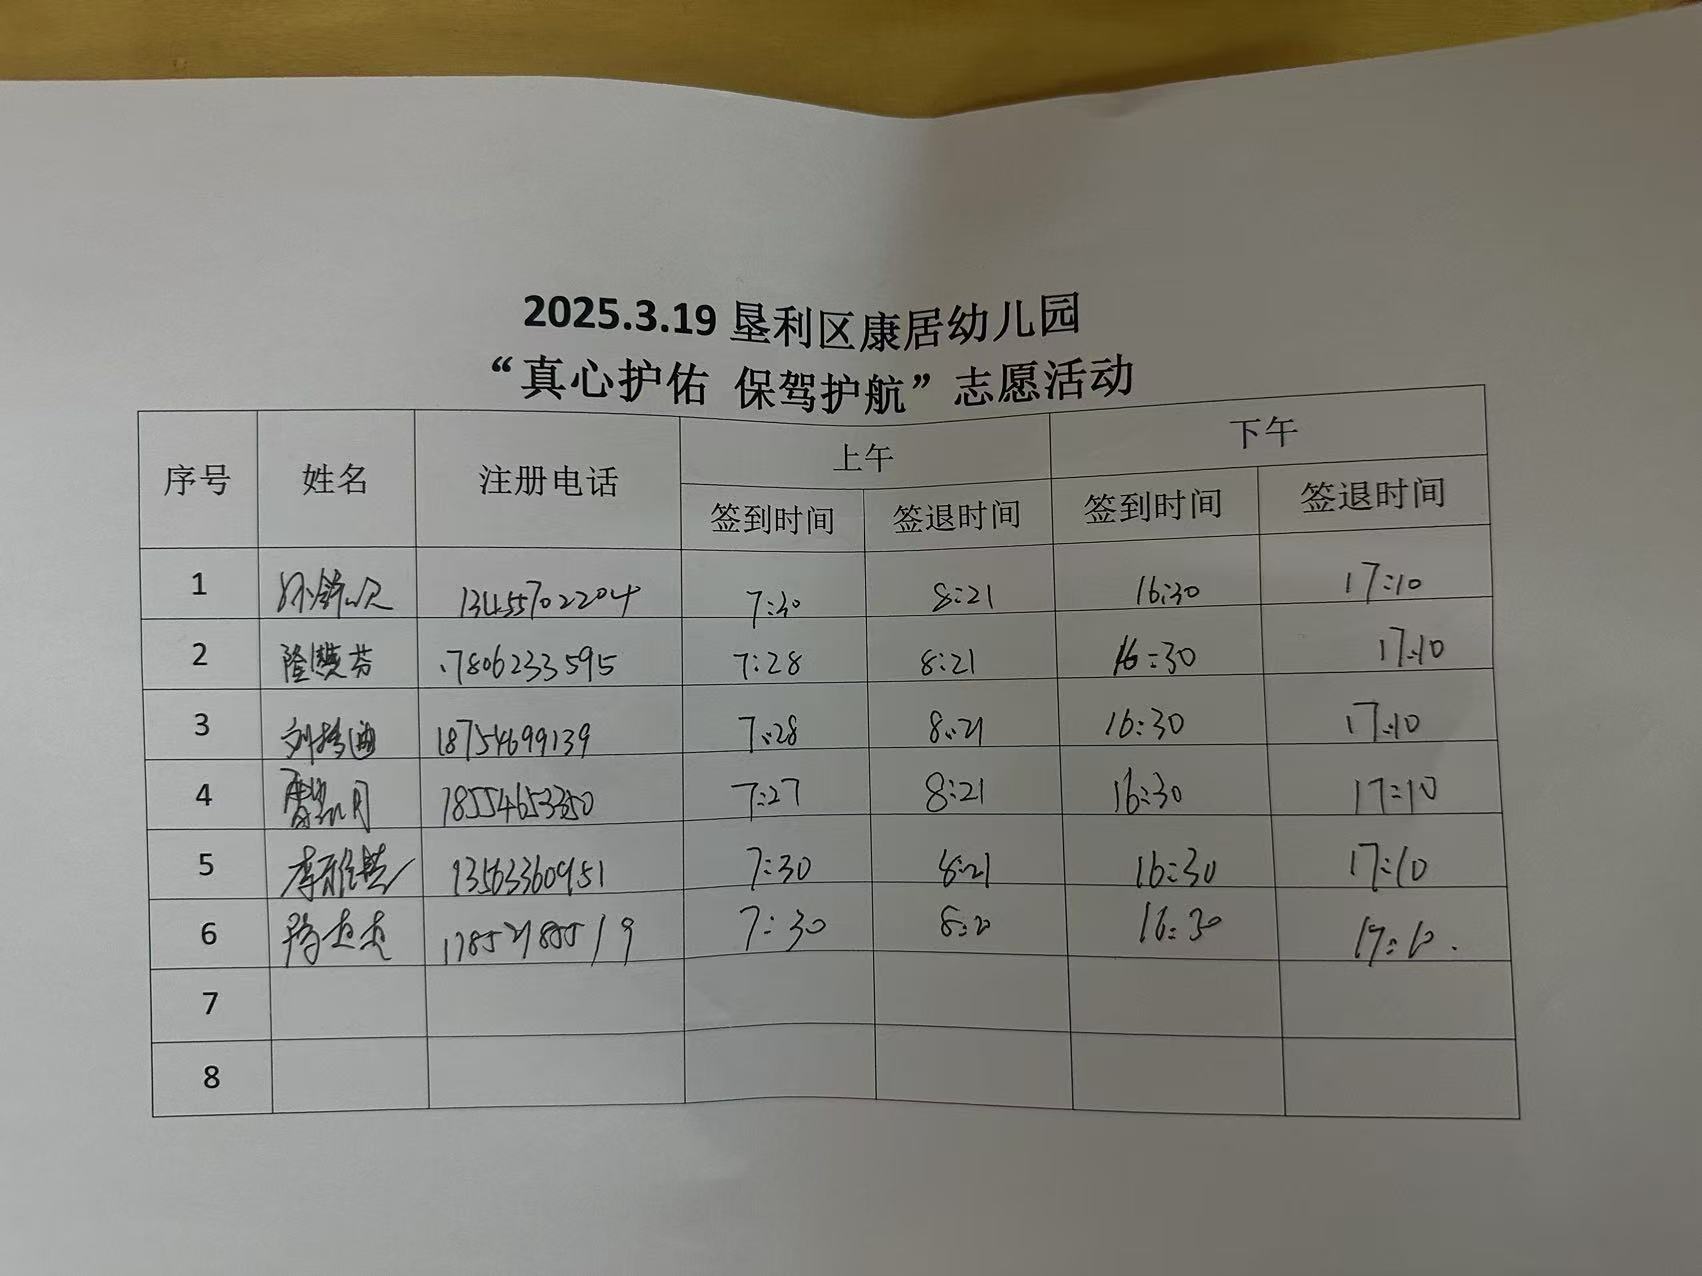 2025.3.19 垦利区康居幼儿园
“真心护佑 保驾护航”志愿活动
序号 姓名 注册电话 上午 下午
签到时间 签退时间 签到时间 签退时间
1 13455702204 7:30 8:21 16:30 17:10
2 17806233595 7:28 8:21 16:30 17:10
3 18754699139 7:28 8:21 16:30 17:10
4 18554653350 7:27 8:21 16:30 17:10
5 13563360951 7:30 8:21 16:30 17:10
6 7:30 8:20 16:30 17:10.
7
8